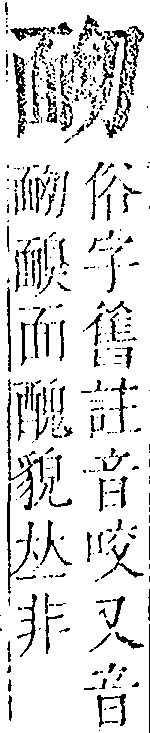 俗字舊註音咬又音
面醜貌𠀤非